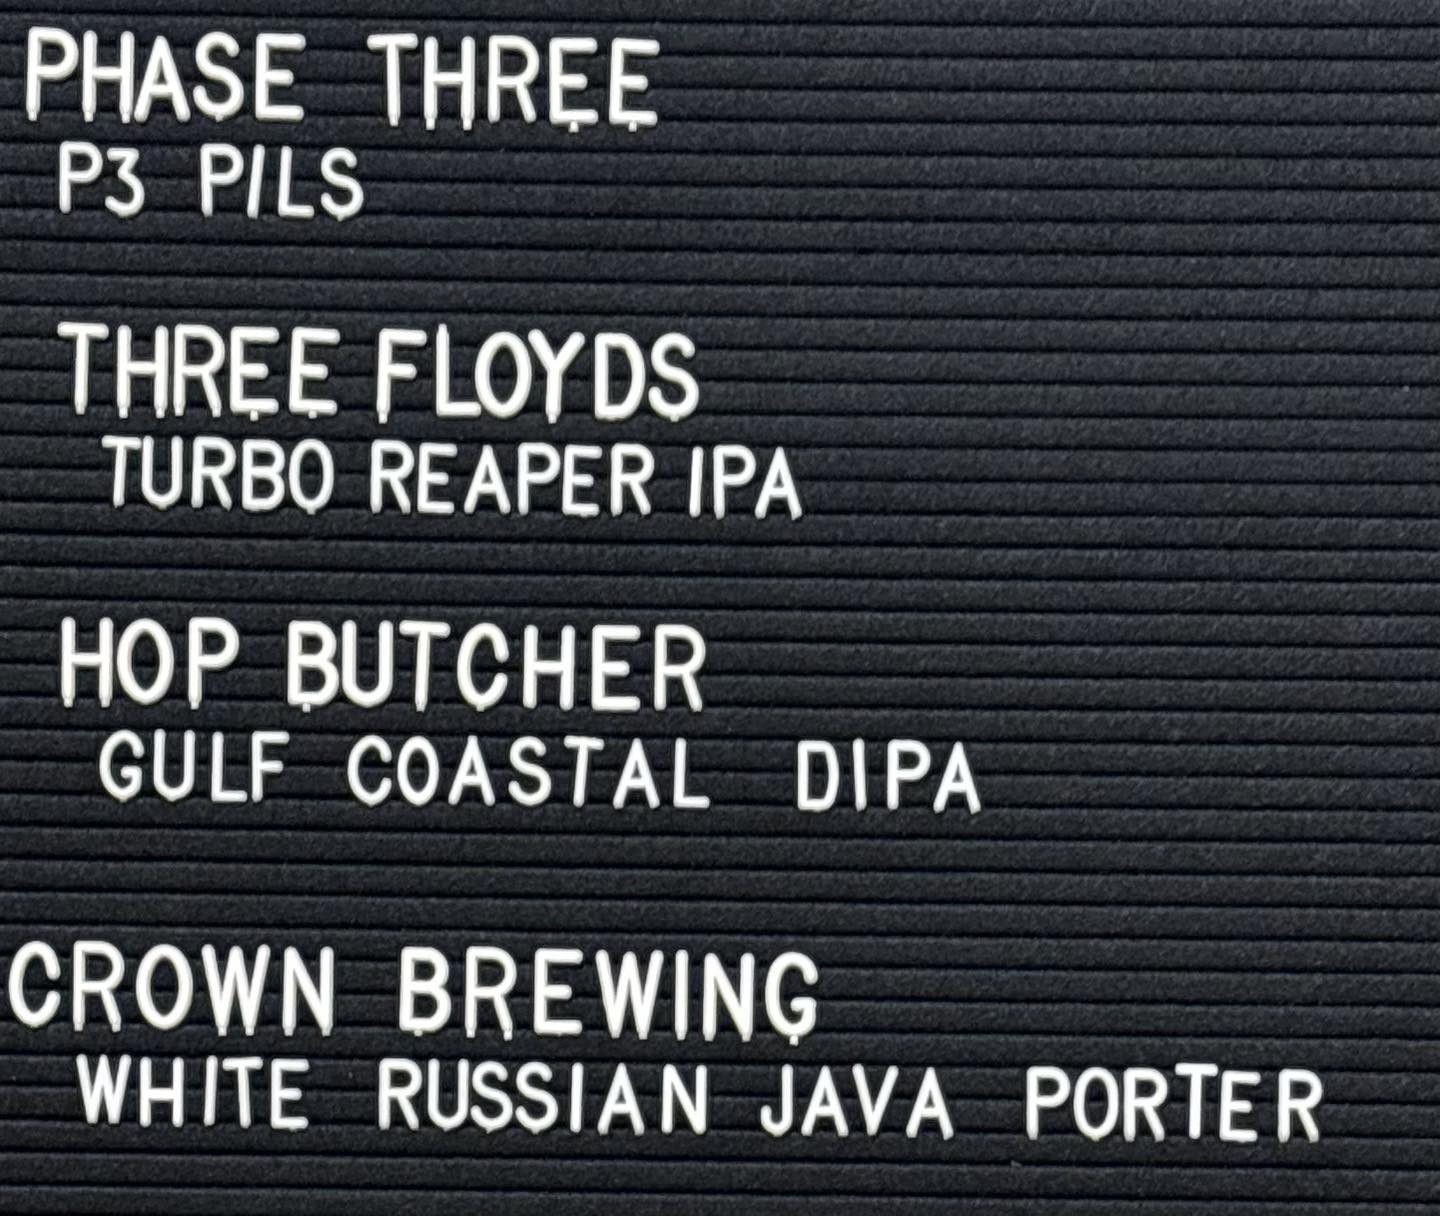 PHASE THREE
P3 PILS
THREE FLOYDS
TURBO REAPER IPA
HOP BUTCHER
GULF COASTAL DIPA
CROWN BREWING
WHITE RUSSIAN JAVA PORTER